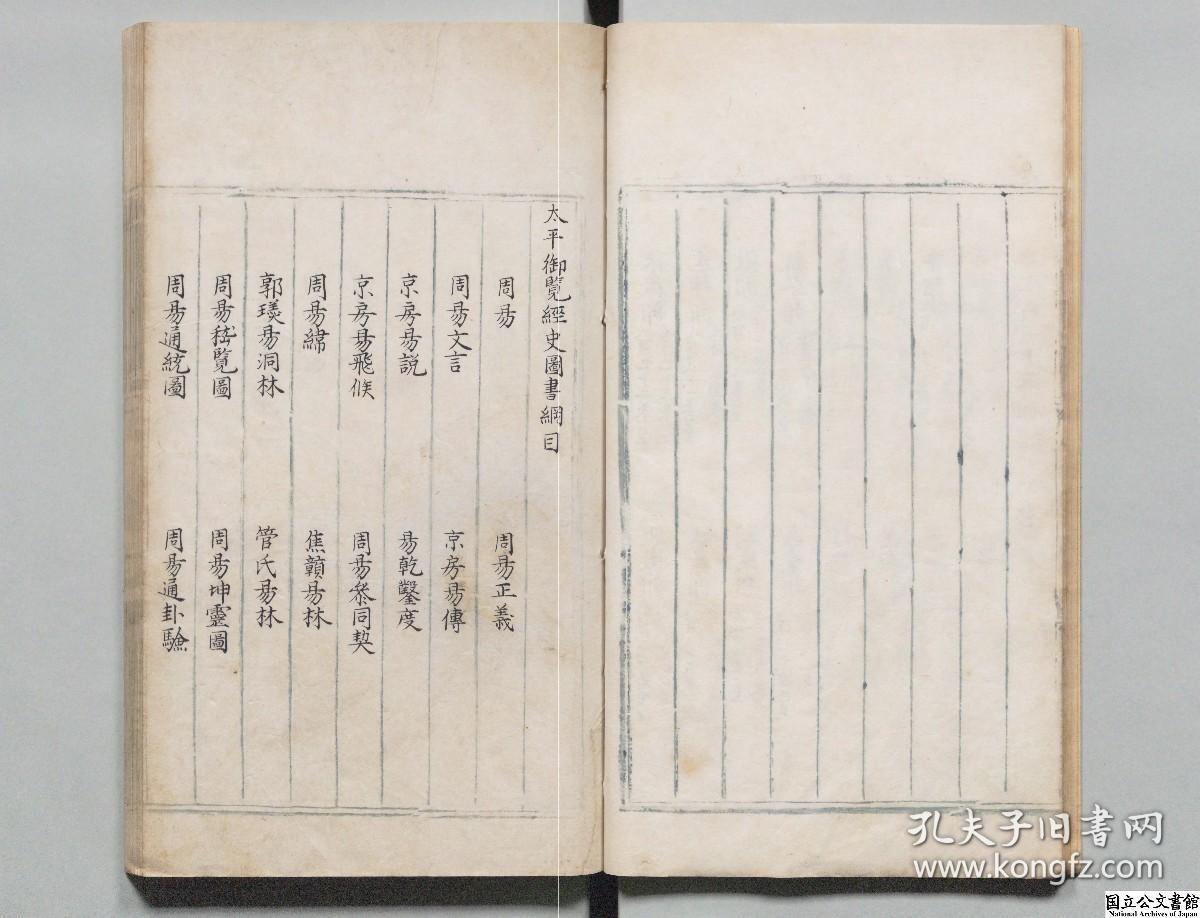 太平御覧經史圖書綱目
周易
周易正義
周易文言
京房易傳
京房易説
易乾鑿度
京房易飛候
周易叅同契
周易緯
焦贛易林
郭璞易洞林
管氏易林
周易稽覽圖
周易坤靈圖
周易通統圖
周易通卦驗
孔夫子旧书网
www.kongfz.com
国立公文書館
National Archives of Japan